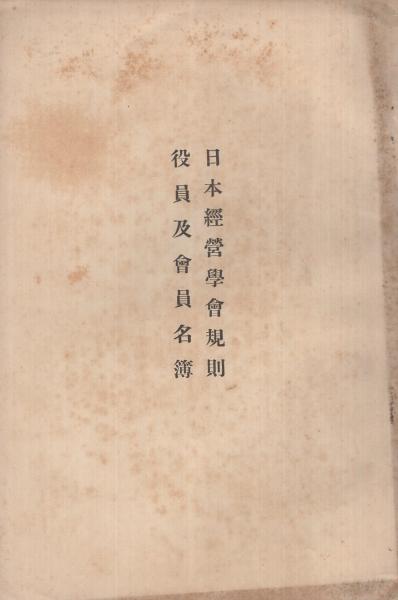 日本經營學會規則
役員及會員名簿